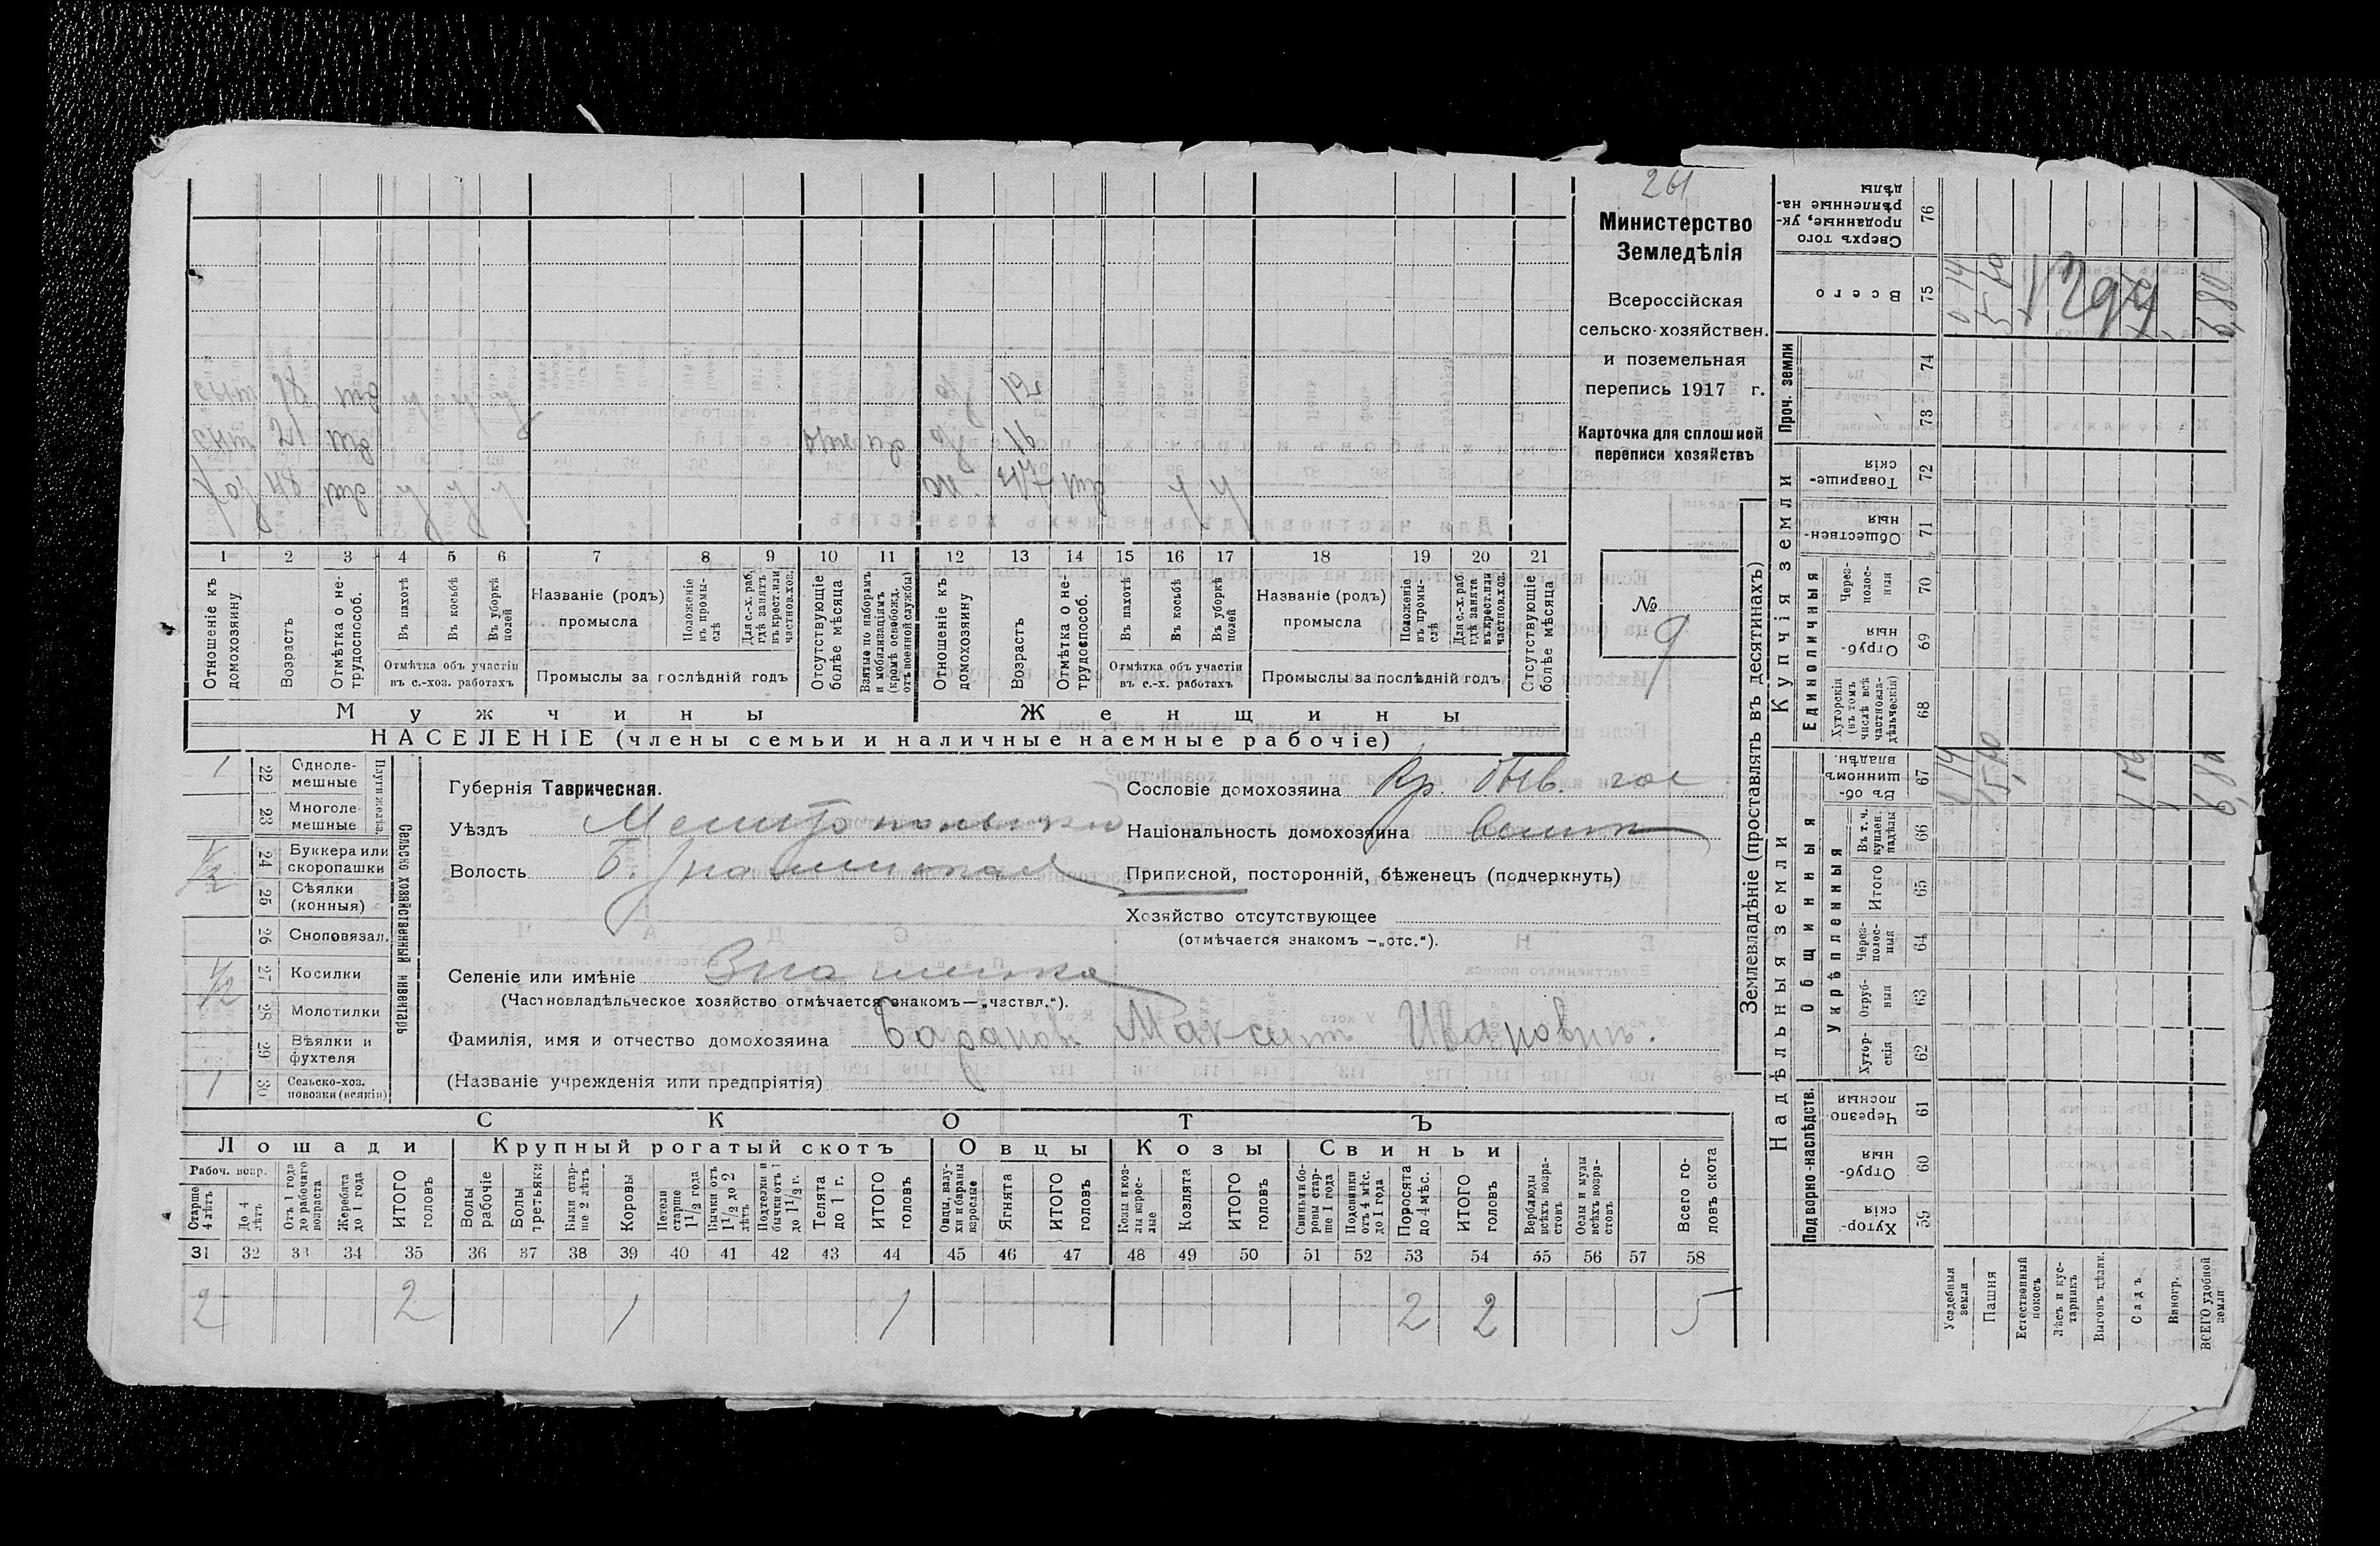 261
Министерство
Земледѣлія
Всероссійская
сельско-хозяйствен.
и поземельная
перепись 1917 г.
Карточка для сплошной
переписи хозяйствъ
№
9
сын 18 тд
сын 21
хоз 48
12
16
ж. 47
1 2 3 4 5 6 7 8 9 10 11 12 13 14 15 16 17 18 19 20 21
Отношеніе къ домохозяину
Возрастъ
Отмѣтка о нетрудоспособ.
Въ пахотѣ
Въ косьбѣ
Въ уборкѣ полей
Отмѣтка объ участіи въ с.-хоз. работахъ
Названіе (родъ) промысла
Положеніе въ промыслѣ
Для с.-х. раб. гдѣ занятъ въ крест. или частнов. хоз.
Промыслы за послѣдній годъ
Отсутствующіе болѣе мѣсяца
Взятые по наборамъ и мобилизаціямъ (кромѣ освобожд. отъ военной службы)
Отношеніе къ домохозяину
Возрастъ
Отмѣтка о нетрудоспособ.
Въ пахотѣ
Въ косьбѣ
Въ уборкѣ полей
Отмѣтка объ участіи въ с.-х. работахъ
Названіе (родъ) промысла
Положеніе въ промыслѣ
Для с.-х. раб. гдѣ занята въ крест. или частнов. хоз.
Промыслы за послѣдній годъ
Отсутствующіе болѣе мѣсяца
Мужчины Женщины
НАСЕЛЕНІЕ (члены семьи и наличные наемные рабочіе)
1 22 Однолемешные
23 Многолемешные
1/2 24 Буккера или скоропашки
25 Сѣялки (конныя)
26 Сноповязал.
1/2 27 Косилки
28 Молотилки
29 Вѣялки и фухтеля
1 30 Сельско-хоз. повозки (всякія)
Плуги желѣз.
Сельско хозяйственный инвентарь
Губернія Таврическая.
Уѣздъ Мелитопольскій
Волость Б. Знаменская
Селеніе или имѣніе Знаменка
(Частновладѣльческое хозяйство отмѣчается знакомъ—„частвл.“).
Фамилія, имя и отчество домохозяина Баданов Максим Иванович.
(Названіе учрежденія или предпріятія)
Сословіе домохозяина Кр. быв. гос
Національность домохозяина
Приписной, посторонній, бѣженецъ (подчеркнуть)
Хозяйство отсутствующее
(отмѣчается знакомъ —„отс.“).
СКОТЪ
Лошади Крупный рогатый скотъ Овцы Козы Свиньи
Рабоч. возр.
Старше 4 лѣтъ
До 4 лѣтъ
Отъ 1 года до рабочаго возраста
Жеребята до 1 года
ИТОГО головъ
Волы рабочіе
Волы третьяки
Быки старше 2 лѣтъ
Коровы
Нетели старше 1 1/2 года
Бычки отъ 1 1/2 до 2 лѣтъ
Подтелки и бычки отъ 1 до 1 1/2 г.
Телята до 1 г.
ИТОГО головъ
Овцы, валухи и бараны взрослые
Ягнята
ИТОГО головъ
Козы и козлы взрослые
Козлята
ИТОГО головъ
Свиньи и боровы старше 1 года
Подсвинки отъ 4 мѣс. до 1 года
Поросята до 4 мѣс.
ИТОГО головъ
Верблюды всѣхъ возрастовъ
Ослы и мулы всѣхъ возрастовъ
Всего головъ скота
31 32 33 34 35 36 37 38 39 40 41 42 43 44 45 46 47 48 49 50 51 52 53 54 55 56 57 58
2 2 1 1 2 2 5
Землевладѣніе (проставлять въ десятинахъ)
Надѣльныя земли Купчія земли Проч. земли
Подворно-наслѣдств. Общинныя Единоличныя
Укрѣпленныя
Хуторскія 59
Отрубныя 60
Черезполосныя 61
Хуторскія 62
Отрубныя 63
Черезполосныя 64
Итого 65
Въ т. ч. куплен. надѣлы 66
Въ общинномъ владѣн. 67
Хуторскія (въ томъ числѣ всѣ частновладѣльческія) 68
Отрубныя 69
Черезполосныя 70
Общественныя 71
Товарищескія 72
73
74
Всего 75
Сверхъ того проданные, укрѣпленные надѣлы 76
Усадебныя земли
Пашня
Естественный покосъ
Лѣсъ и кустарникъ
Выгонъ цѣлин.
Садъ
Виногр.
ВСЕГО удобной земли
6,80
6,80